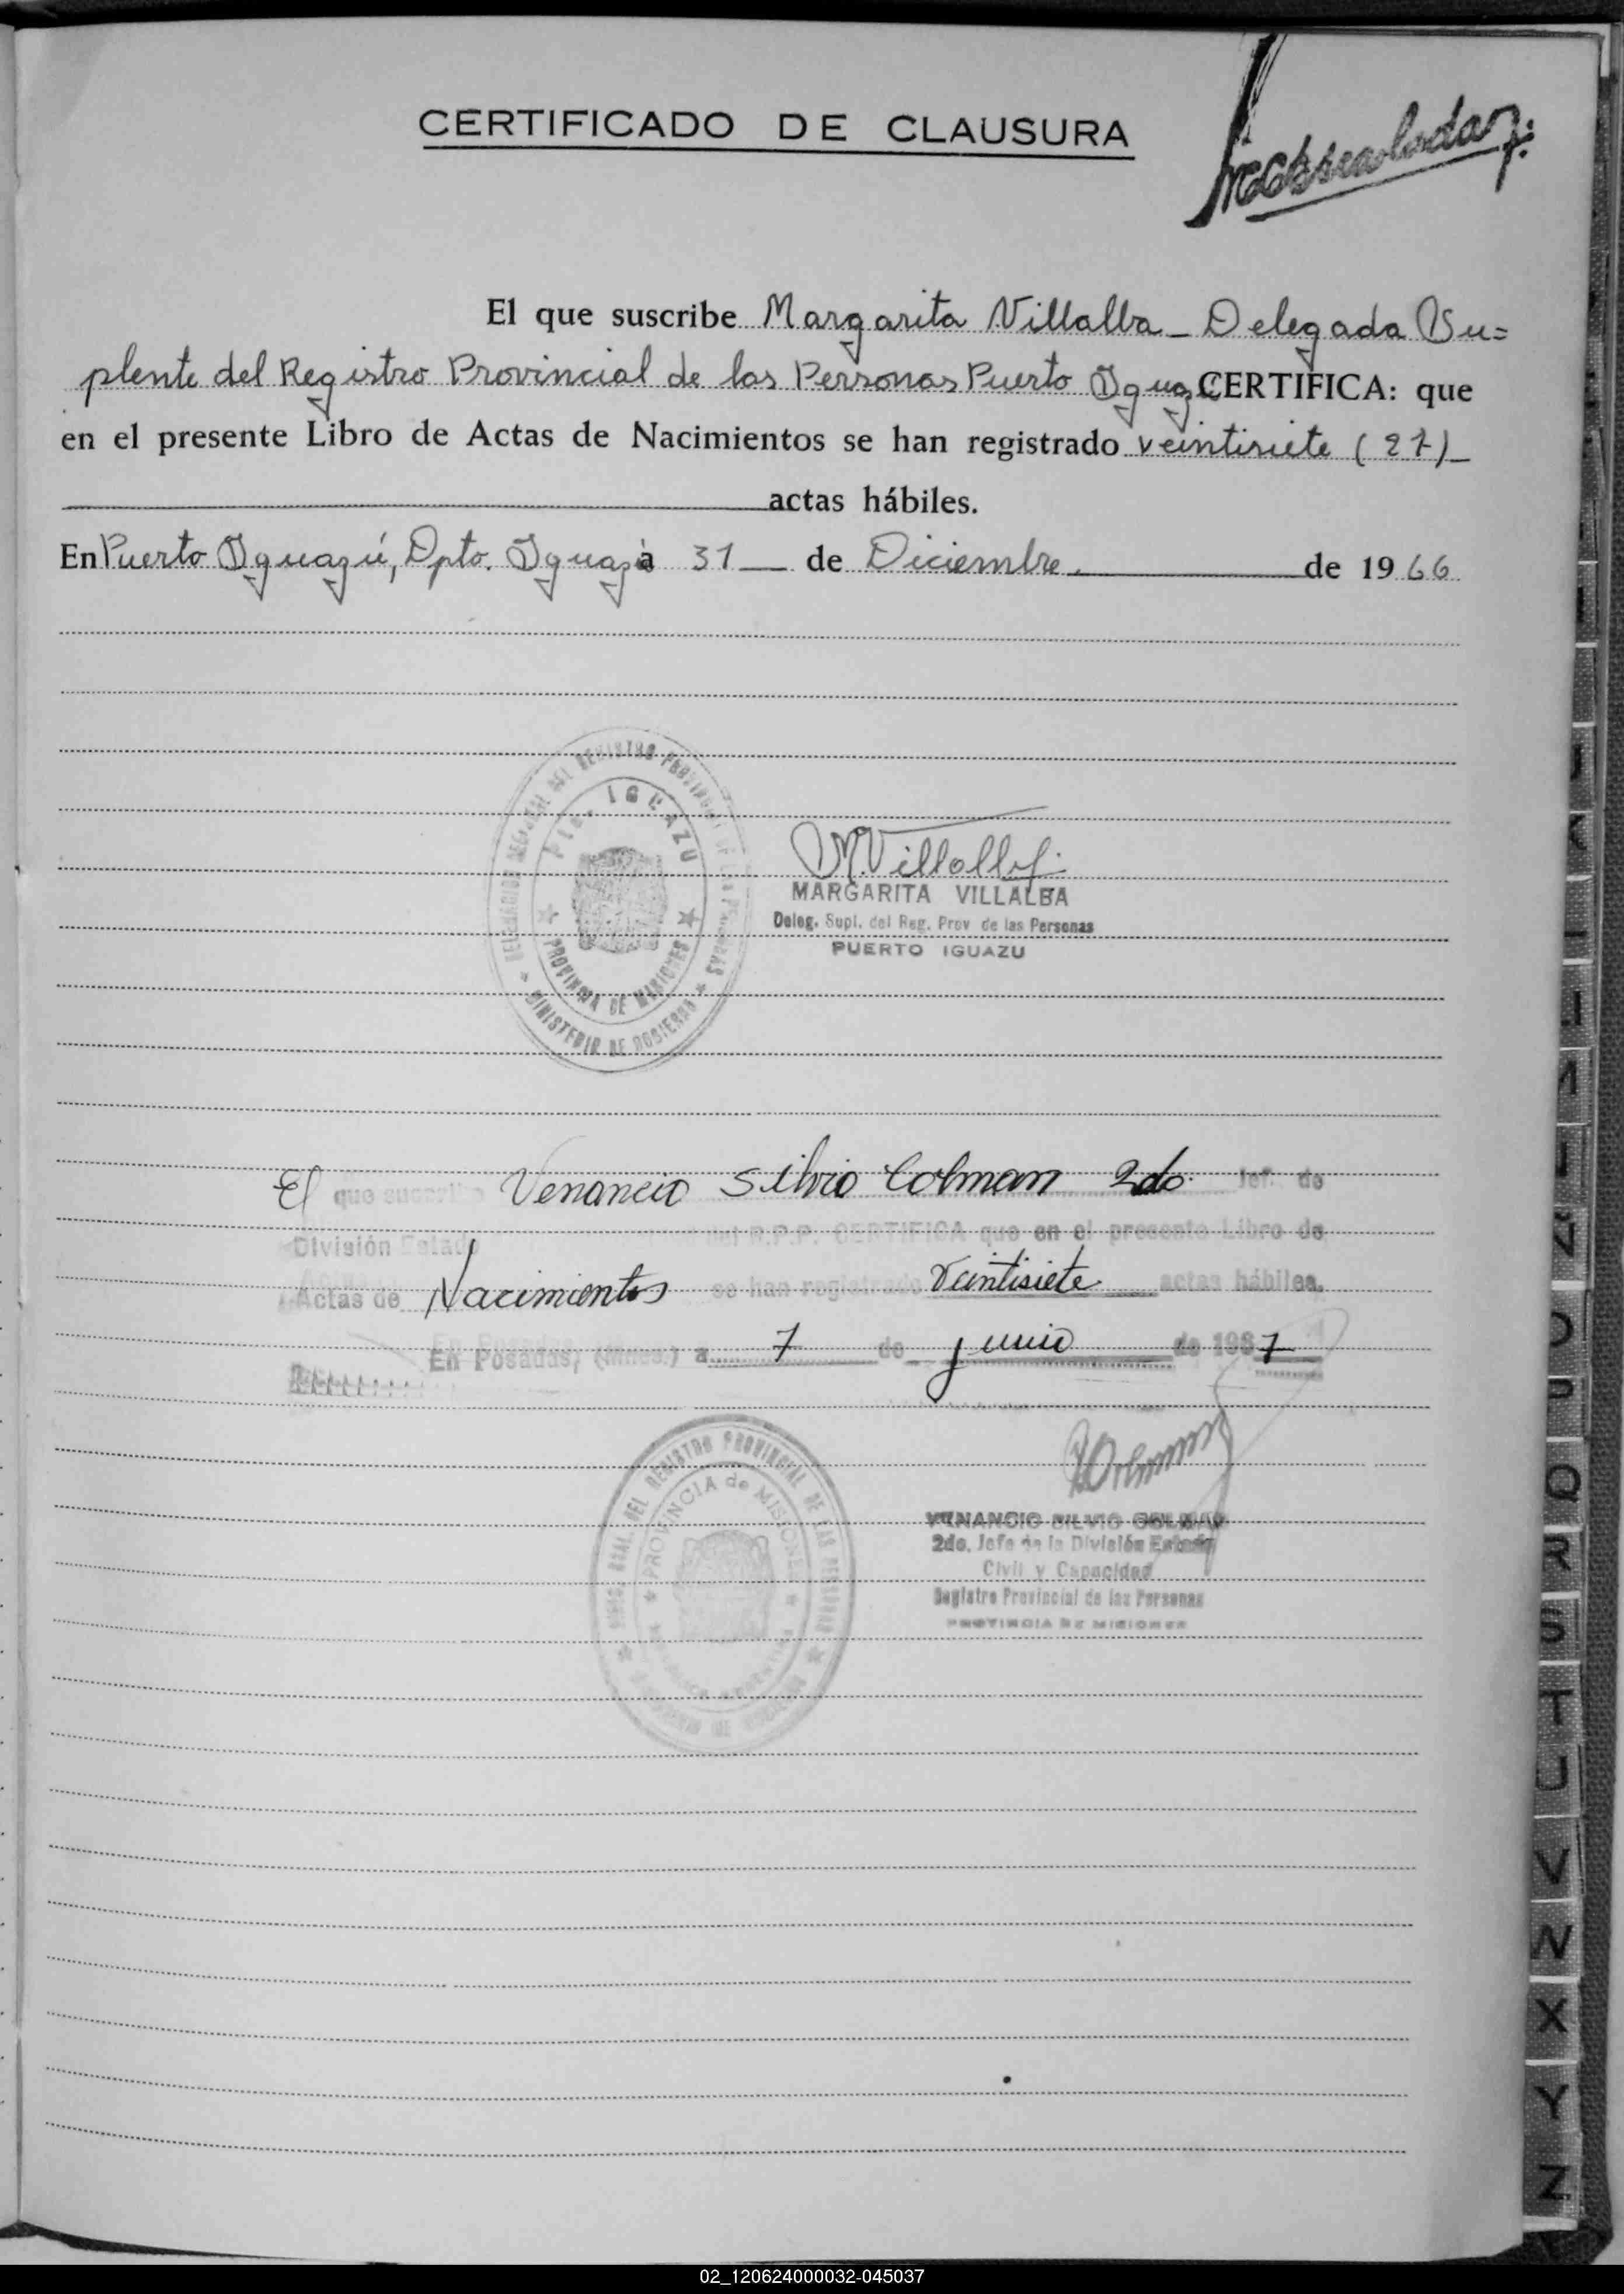 CERTIFICADO DE CLAUSURA
El que suscribe Margarita Villalba - Delegada Su=
plente del Registro Provincial de las Personas Puerto Iguazú CERTIFICA: que
en el presente Libro de Actas de Nacimientos se han registrado veintisiete (27)
actas hábiles.
En Puerto Iguazú, Dpto. Iguazú a 31 de Diciembre. de 1966
DEL REGISTRO PROVINCIAL DE LAS PERSONAS
Pto. IGUAZU
PROVINCIA DE MISIONES
MINISTERIO DE GOBIERNO
M. Villalba
MARGARITA VILLALBA
Deleg. Supl. del Reg. Prov de las Personas
PUERTO IGUAZU
El que suscribe Venancio Silvio Colman 2do. Jef. de
División Estado del R.P.P. CERTIFICA que en el presente Libro de
Actas de Nacimientos se han registrado Veintisiete actas hábiles.
En Posadas, (Mnes.) a 7 de junio de 1967
DEL REGISTRO PROVINCIAL DE LAS PERSONAS
PROVINCIA de MISIONES
VENANCIO SILVIO COLMAN
2do. Jefe de la División Estado
Civil y Capacidad
Registro Provincial de las Personas
PROVINCIA DE MISIONES
J
K
L
M
N
Ñ
O
P
Q
R
S
T
U
V
W
X
Y
Z
02_120624000032-045037